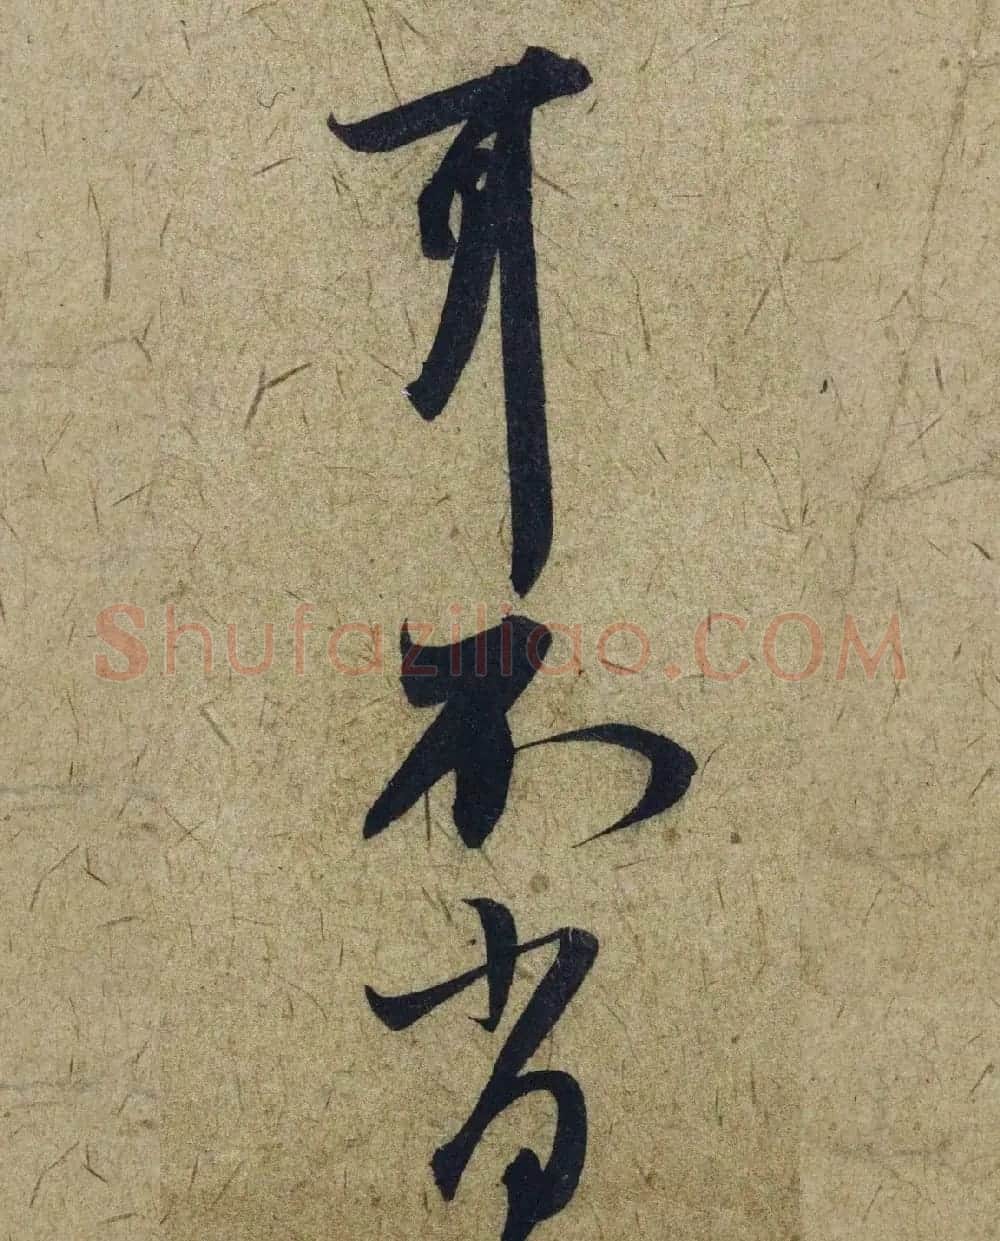 耳不省
Shufaziliao.COM